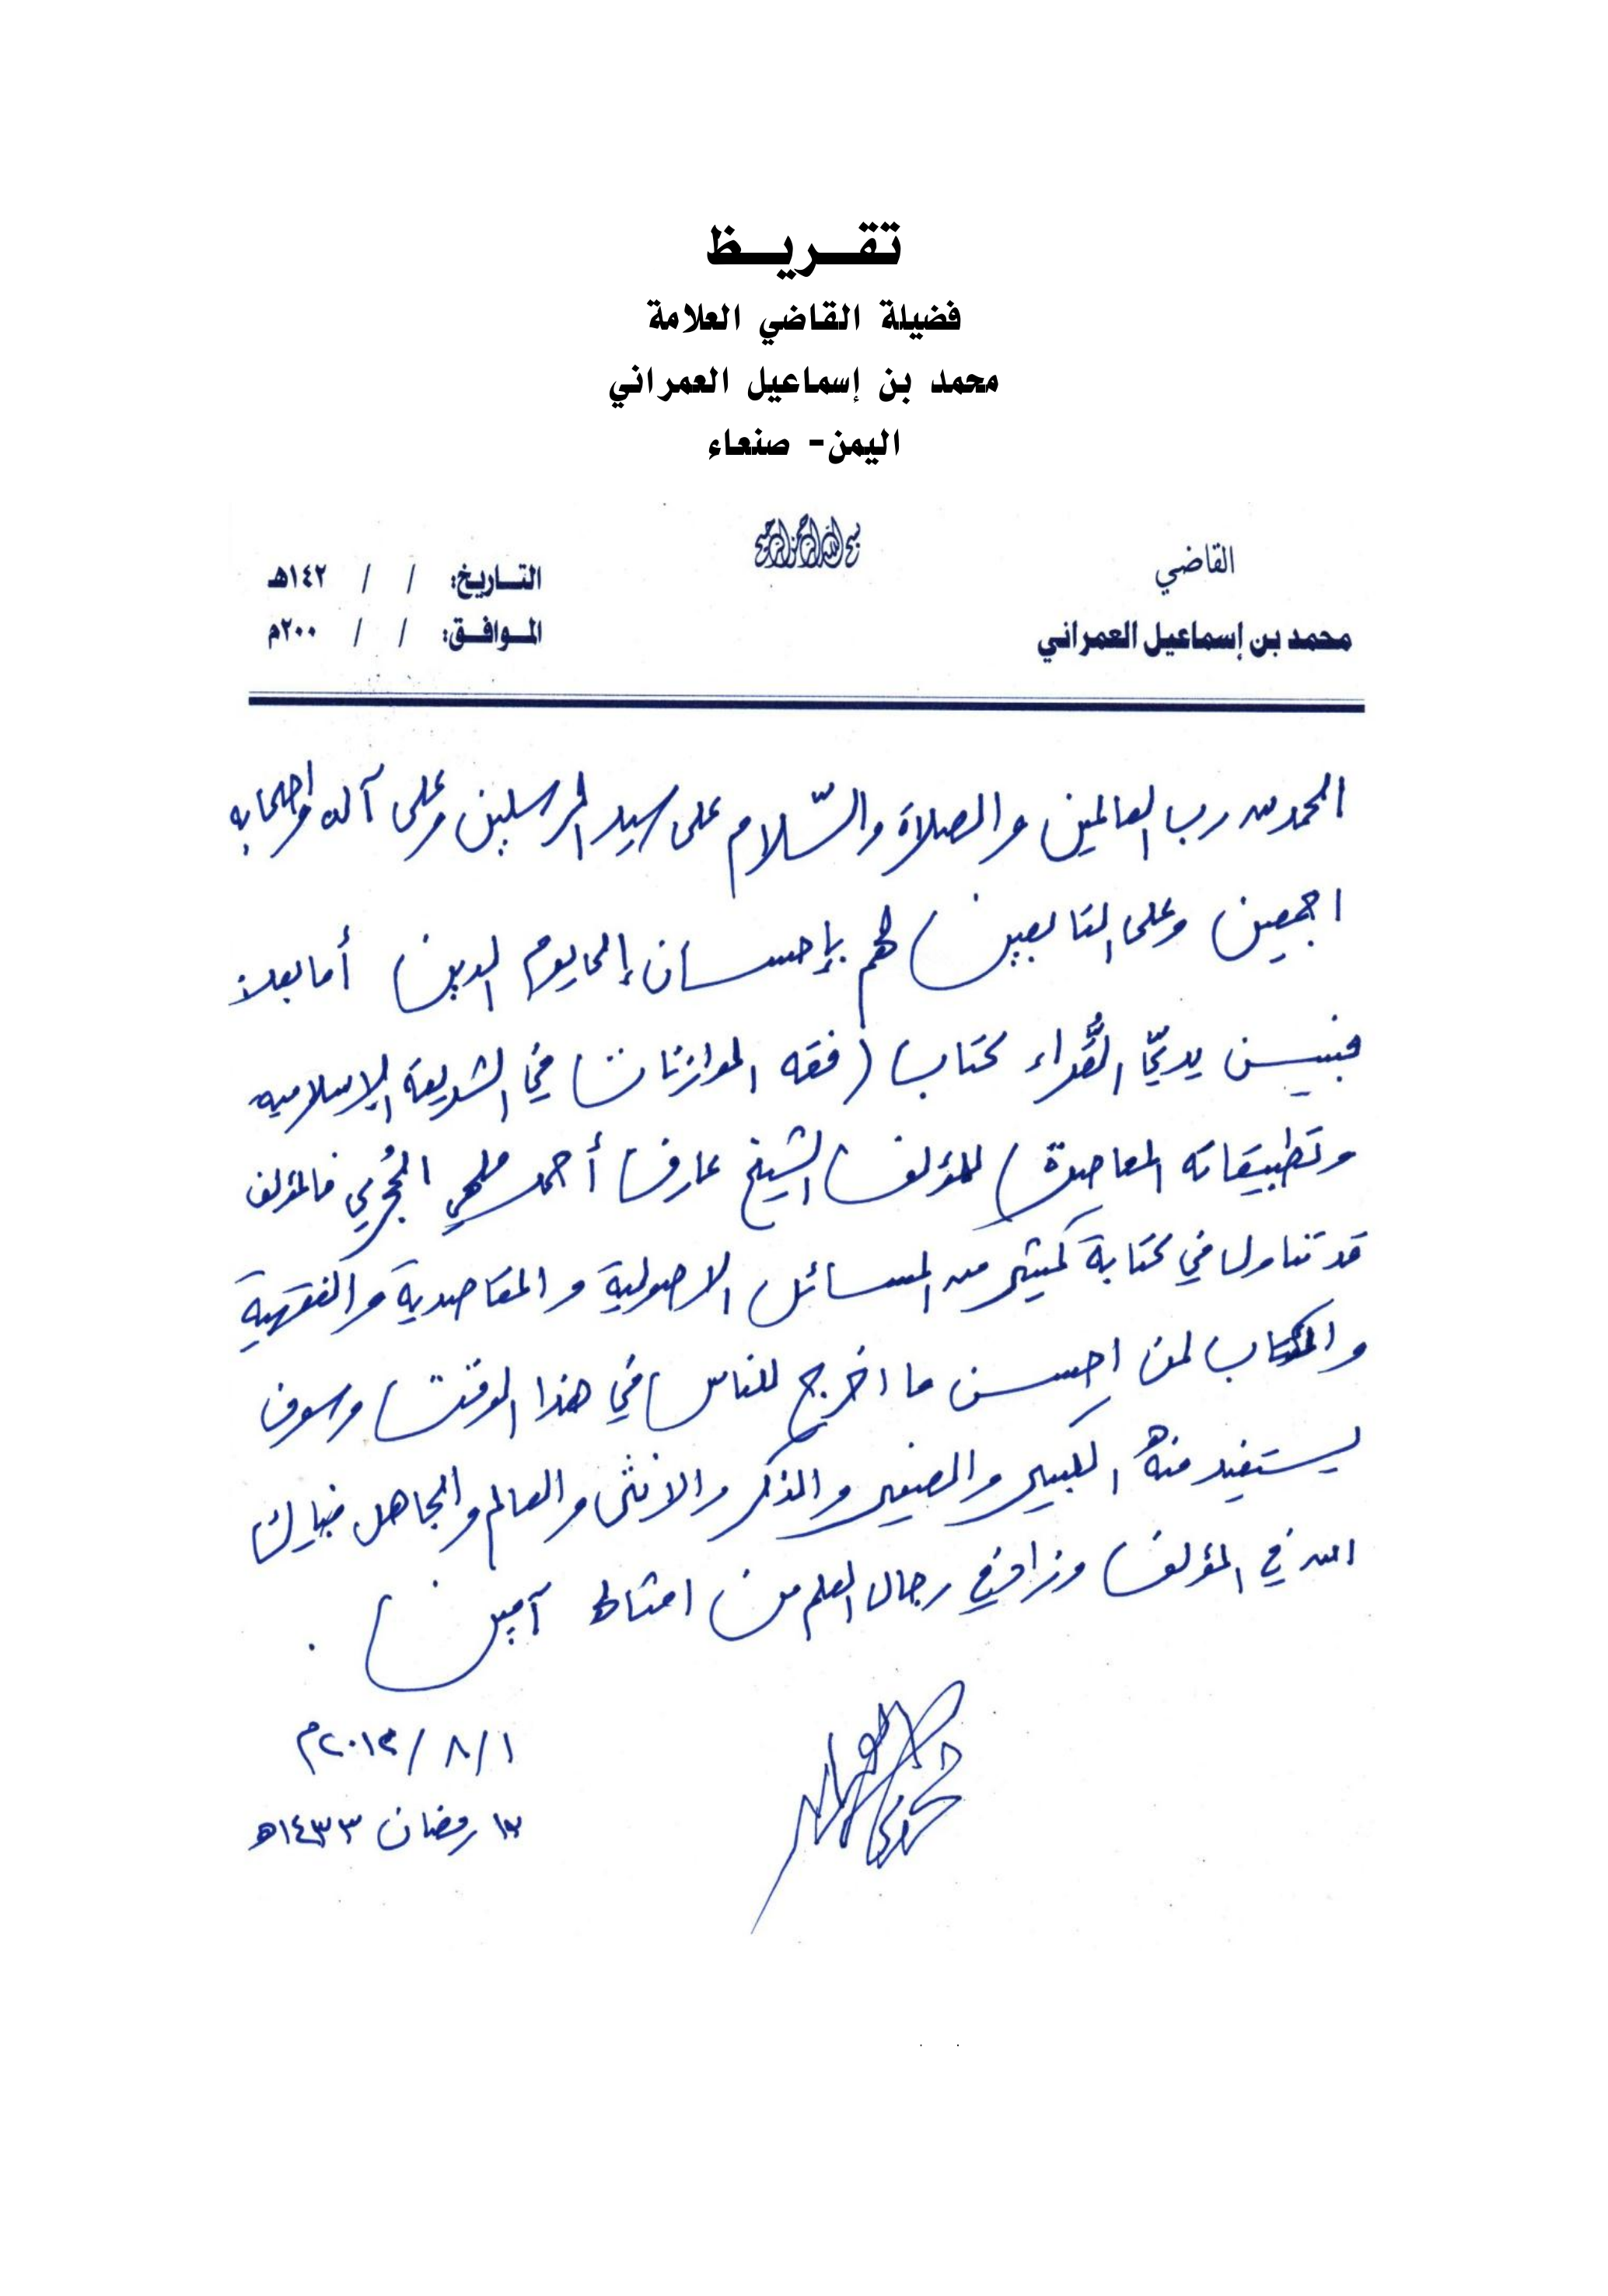 تقريظ
فضيلة القاضي العلامة
محمد بن إسماعيل العمراني
اليمن- صنعاء
بسم الله الرحمن الرحيم
القاضي
محمد بن إسماعيل العمراني
التاريخ: / / ١٤٢هـ
الموافق: / / ٢٠٠م
الحمد لله رب العالمين والصلاة والسّلام على سيد المرسلين وعلى آله واصحابه
اجمعين وعلى التابعين لهم بإحسان إلى يوم الدين أما بعد:
فبين يديّ القُّراء كتاب (فقه الموازنات في الشريعة الإسلاميه
وتطبيقاته المعاصرة) للمؤلف الشيخ عارف أحمد ملهي فالمؤلف
قد تناول في كتابة كثير من المسائل الاصولية والمقاصدية والفقهية
والكتاب لمن احسن ما اخرج للناس في هذا الوقت وسوف
يستفيد منه الكبير والصغير والذكر والانثى والعالم والجاهل فبارك
الله في المؤلف وزاد في رجال العلم من امثاله آمين .
١/ ٨ /٢٠١٢م
رمضان ١٤٣٣هـ